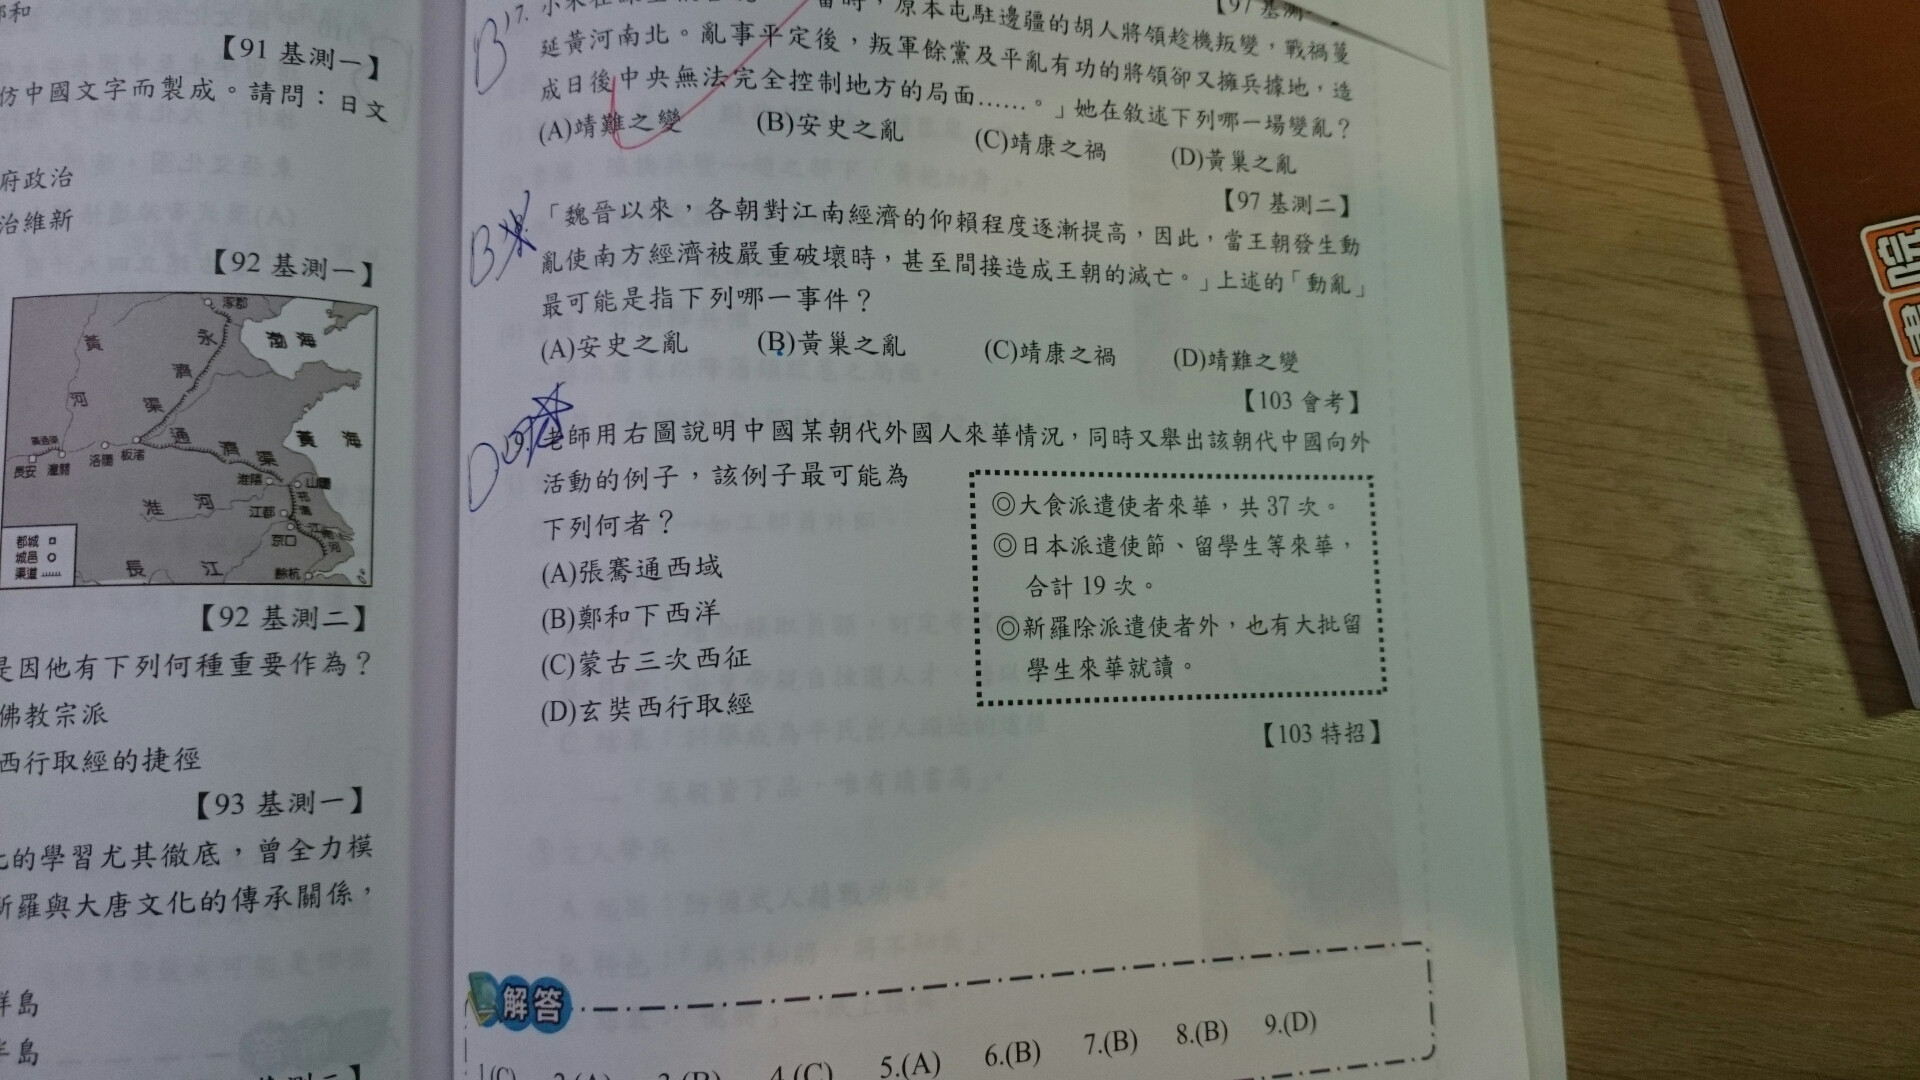 【91 基測一】
仿中國文字而製成。請問：日文
府政治
治維新
【92 基測一】
涿郡
黃
永
渤海
濟
河
渠
通
濟
渠
黃海
長安
潼關
洛陽
板渚
淮陰
山陽
淮河
江都
京口
江南河
長江
餘杭
都城
城邑
渠道
【92 基測二】
是因他有下列何種重要作為？
佛教宗派
西行取經的捷徑
【93 基測一】
化的學習尤其徹底，曾全力模
新羅與大唐文化的傳承關係，
群島
半島
【97 基測一】
B 17.
當時，原本屯駐邊疆的胡人將領趁機叛變，戰禍蔓
延黃河南北。亂事平定後，叛軍餘黨及平亂有功的將領卻又擁兵據地，造
成日後中央無法完全控制地方的局面……。」她在敘述下列哪一場變亂？
(A)靖難之變 (B)安史之亂 (C)靖康之禍 (D)黃巢之亂
【97 基測二】
B 「魏晉以來，各朝對江南經濟的仰賴程度逐漸提高，因此，當王朝發生動
亂使南方經濟被嚴重破壞時，甚至間接造成王朝的滅亡。」上述的「動亂」
最可能是指下列哪一事件？
(A)安史之亂 (B)黃巢之亂 (C)靖康之禍 (D)靖難之變
【103 會考】
D 19. 老師用右圖說明中國某朝代外國人來華情況，同時又舉出該朝代中國向外
活動的例子，該例子最可能為
下列何者？
(A)張騫通西域
(B)鄭和下西洋
(C)蒙古三次西征
(D)玄奘西行取經
◎大食派遣使者來華，共 37 次。
◎日本派遣使節、留學生等來華，
合計 19 次。
◎新羅除派遣使者外，也有大批留
學生來華就讀。
【103 特招】
解答
1.(C) 2.(A) 3.(B) 4.(C) 5.(A) 6.(B) 7.(B) 8.(B) 9.(D)